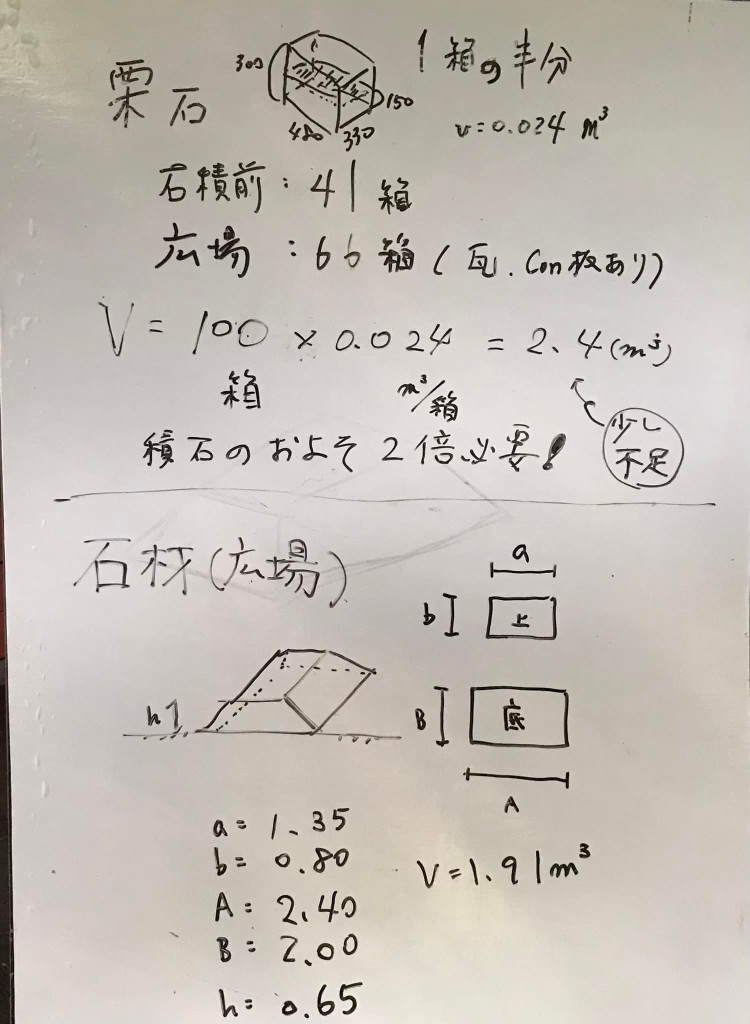 栗石
300
480
330
150
1箱の半分
v=0.024 m³
石積前：41箱
広場：66箱(瓦.Con板あり)
V = 100 × 0.024 = 2.4(m³)
箱 m³/箱
少し
不足
積石のおよそ2倍必要！
石材(広場)
a
b
上
h
B
底
A
a = 1.35
b = 0.80
A = 2.40
B = 2.00
h = 0.65
V = 1.91m³